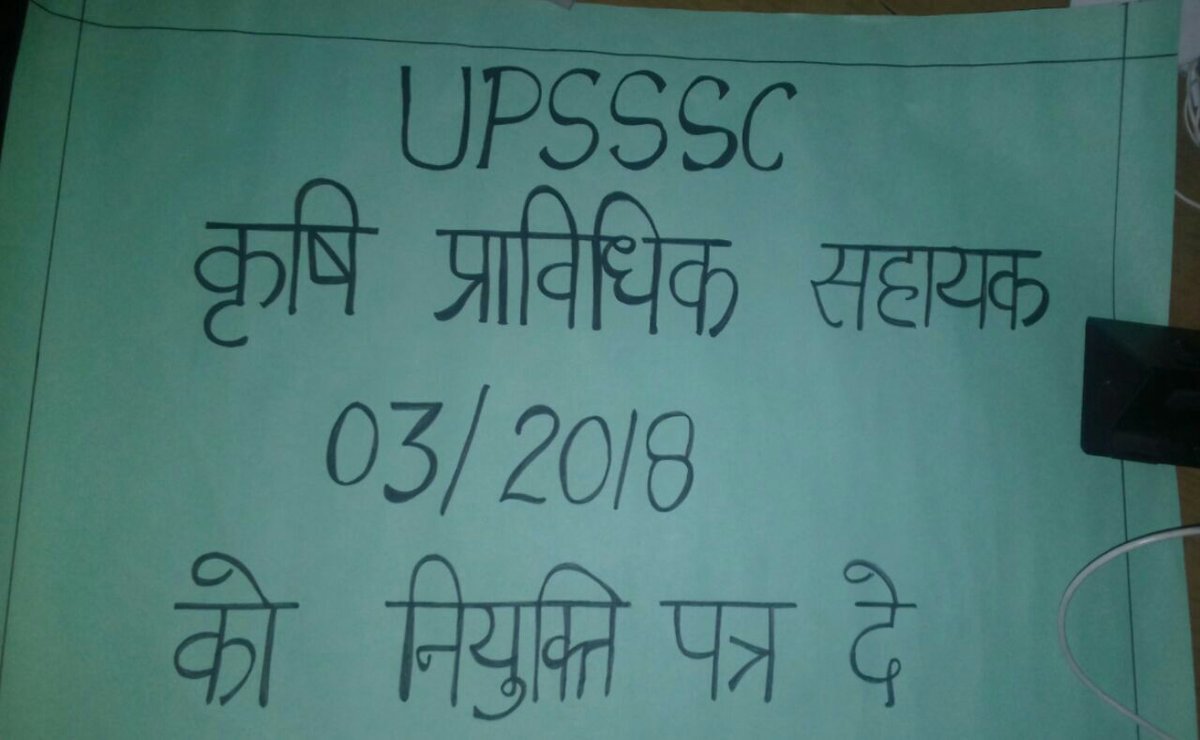 UPSSSC
कृषि प्राविधिक सहायक
03/2018
को नियुक्ति पत्र दे